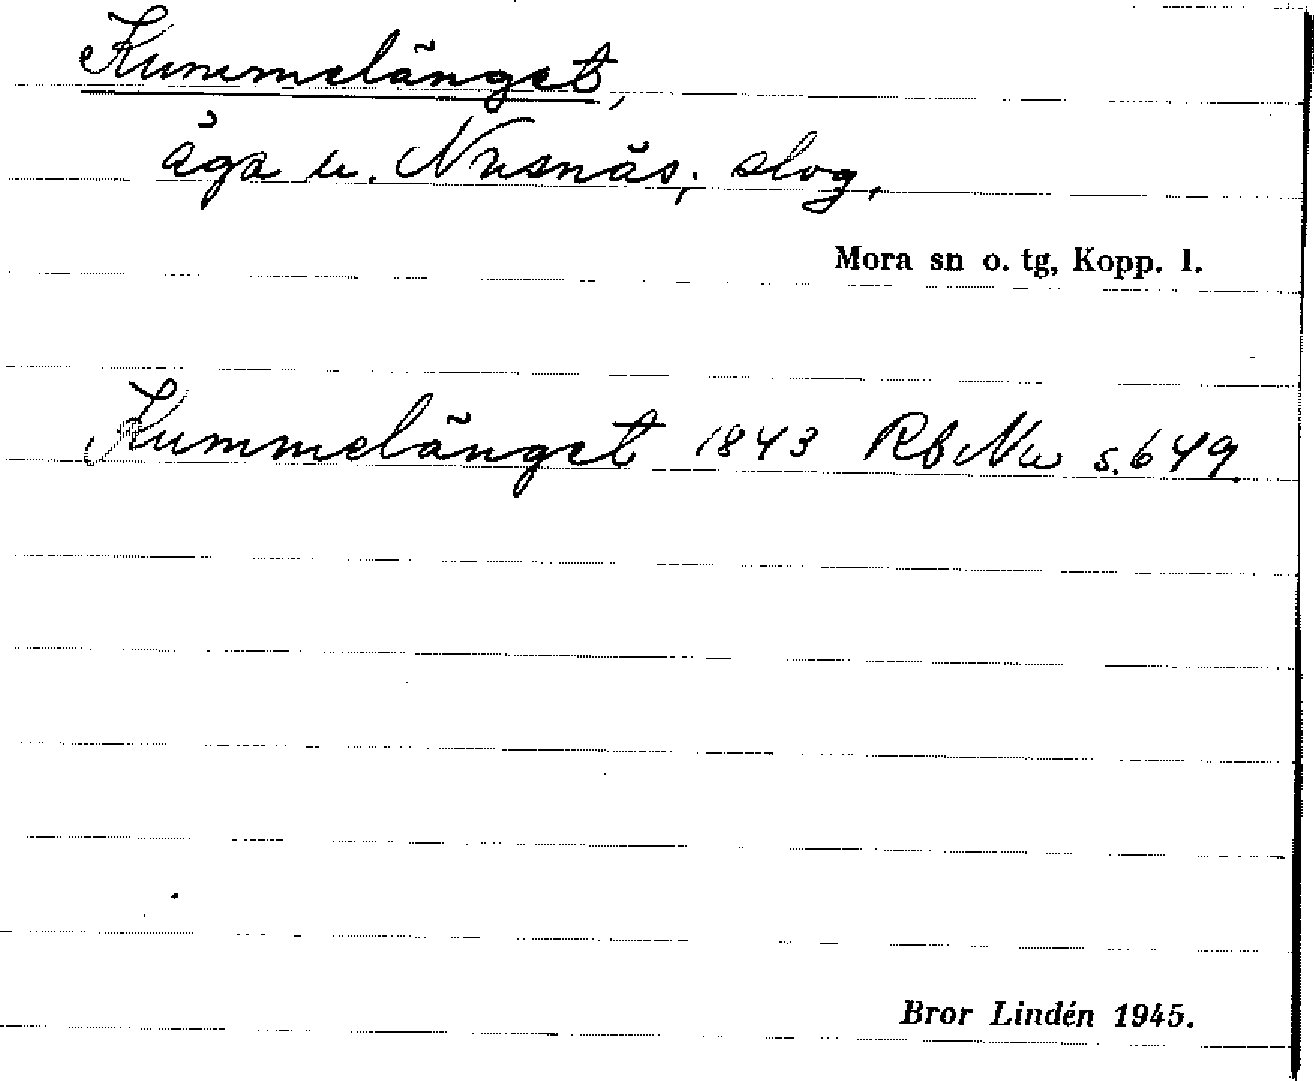 Kummelänget,
äga u. Nusnäs; slog,
Mora sn o. tg, Kopp. l.
Kummelänget 1843 Rb Nu s. 649.
Bror Lindén 1945.